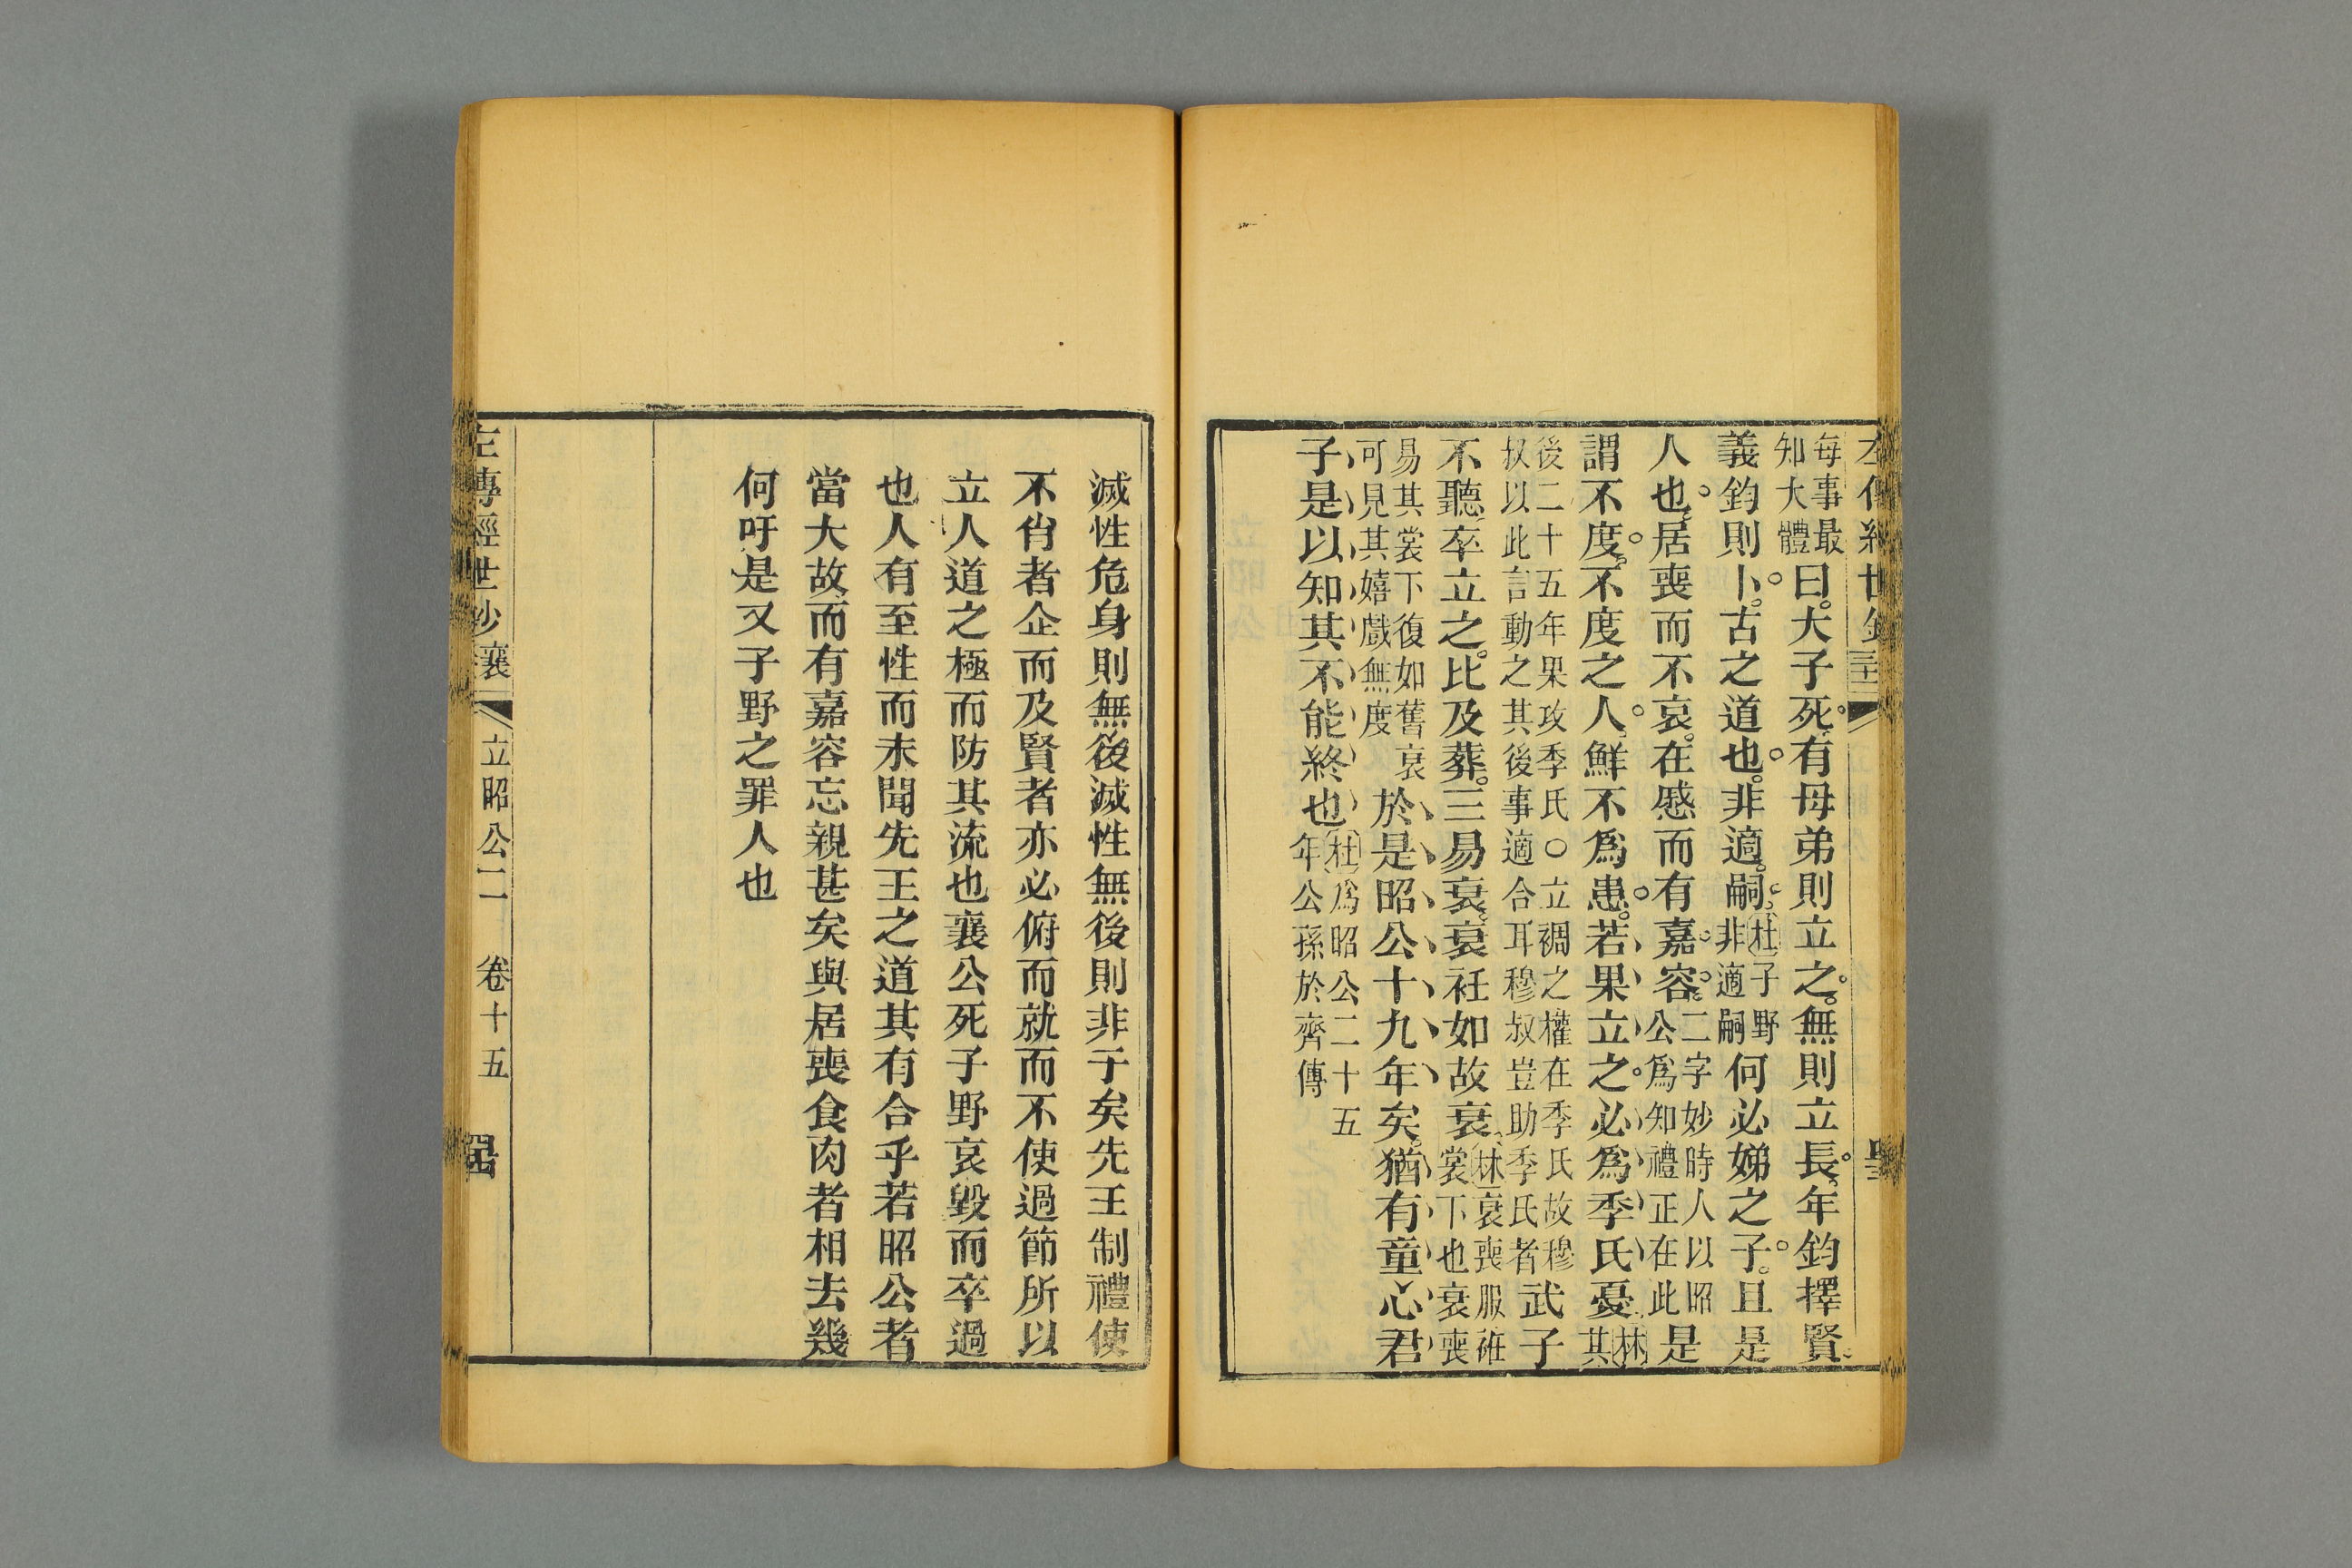 每事最知大體曰大子死有母弟則立之無則立長年鈞擇賢
義鈞則卜古之道也非適嗣杜子野非適嗣何必娣之子且是
人也居喪而不哀在慼而有嘉容二字妙時人以昭公爲知禮正在此是
謂不度不度之人鮮不爲患若果立之必爲季氏憂林其
後二十五年果攻季氏○立裯之權在季氏故穆叔以此言動之其後事適合耳穆叔豈助季氏者武子
不聽卒立之比及葬三易衰衰衽如故衰林衰喪服衽裳下也衰喪
易其裳下復如舊衰可見其嬉戲無度於是昭公十九年矣猶有童心君
子是以知其不能終也杜爲昭公二十五年公孫於齊傳
滅性危身則無後滅性無後則非于矣先王制禮使
不肖者企而及賢者亦必俯而就而不使過節所以
立人道之極而防其流也襄公死子野哀毀而卒過
也人有至性而未聞先王之道其有合乎若昭公者
當大故而有嘉容忘親甚矣與居喪食肉者相去幾
何吁是又子野之罪人也
左傳經世鈔 襄 立昭公二 卷十五